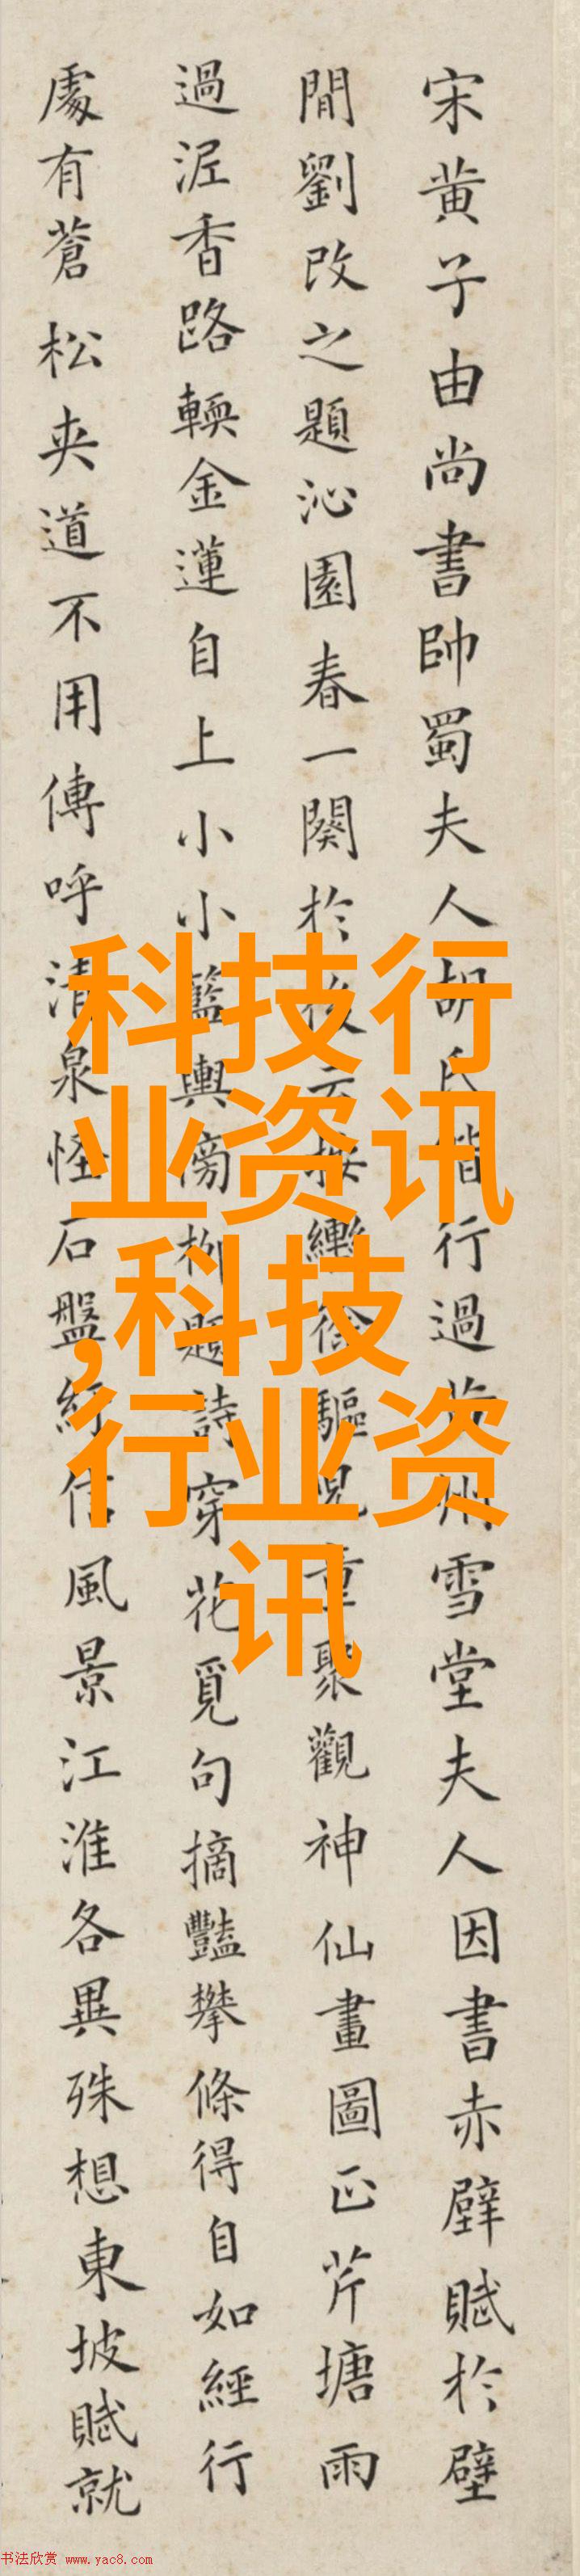 宋黄子由尚書帥蜀夫人胡氏偕行過黄州雪堂夫人因書赤壁賦於壁
閒劉改之題沁園春一闋於後云按轡徐驅兒童聚觀神仙畫圖正芹塘雨
過泥香路輭金蓮自上小小籃輿傍柳題詩穿花覓句摘豔攀條得自如經行
處有蒼松夾道不用傳呼清泉怪石盤紆信風景江淮各異殊想東坡賦就
科技行
业资讯
,科技
行业资
讯
书法欣赏 www.yac8.com